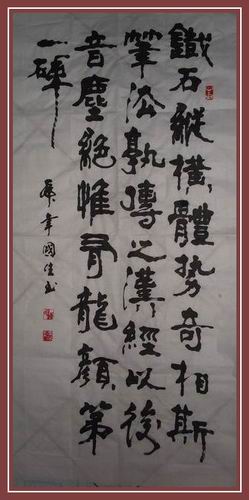 鐵石縱橫體勢奇相斯
筆法孰傳之漢經以後
音塵絕惟有龍顏第
一碑
年國生书